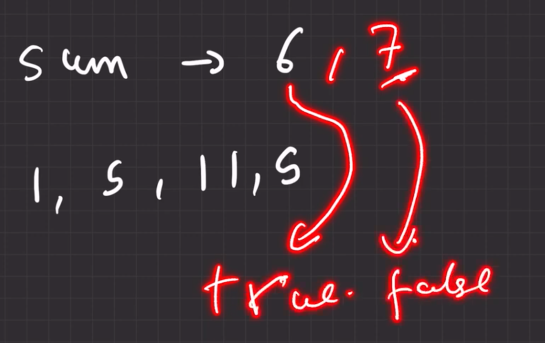 sum → 6, 7
1, 5, 11, 5
true. false